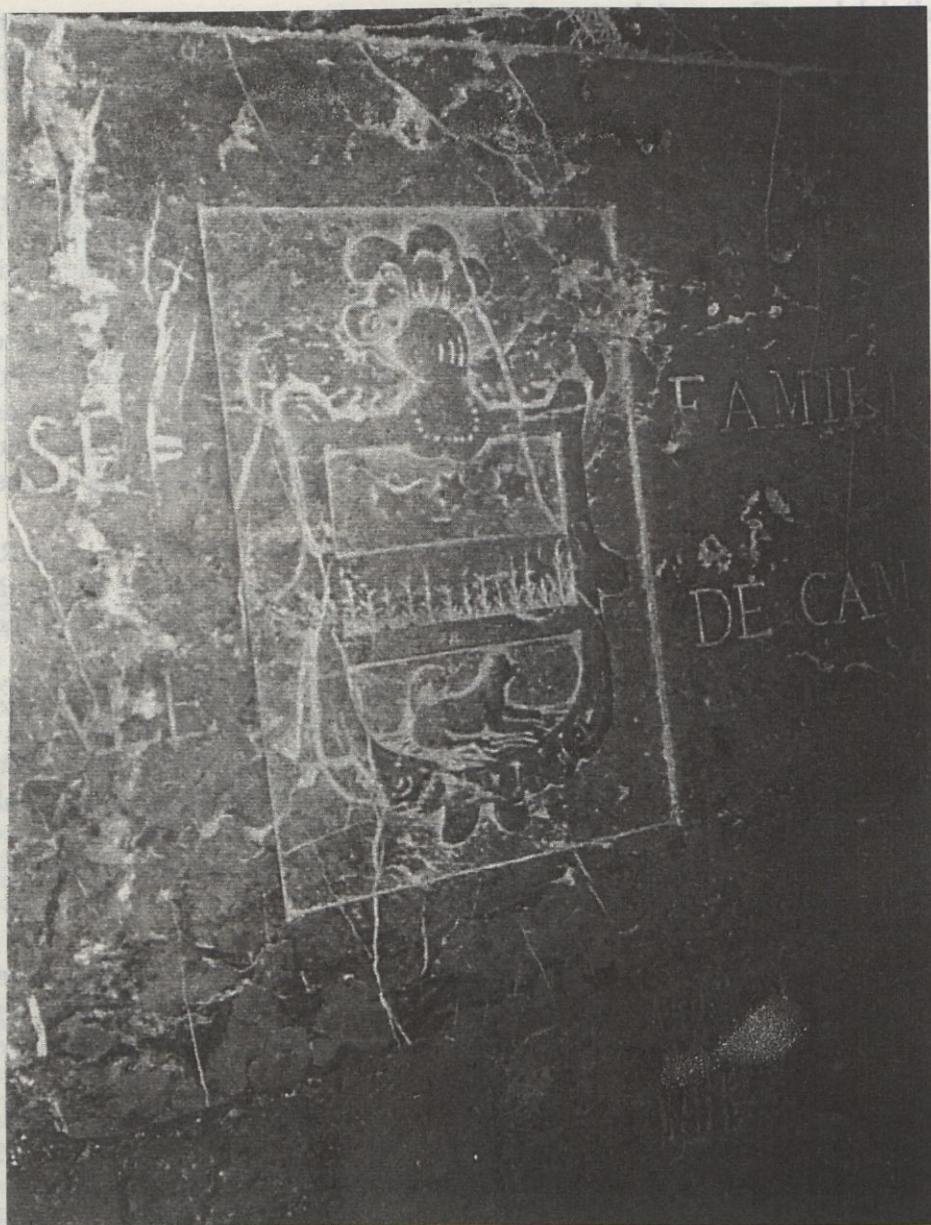 SEL FAMILI
DE CAM